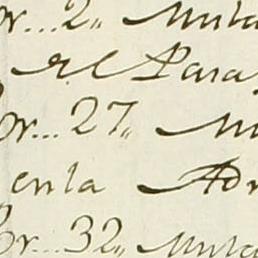 r...2,, Mula
el Para
r...27,, Mu
enla Adr
r...32,, Mula